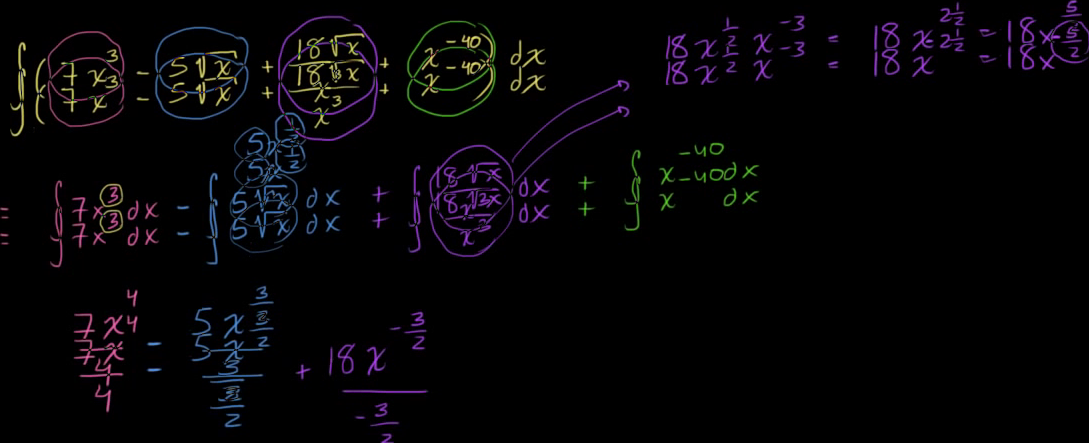 ∫(7x³ - 5√x + 18√x/x³ + x⁻⁴⁰) dx
18x^(1/2) x⁻³ = 18x^(-2 1/2) = 18x^(-5/2)
= ∫7x³ dx - ∫5√x dx + ∫18√x/x³ dx + ∫x⁻⁴⁰ dx
5x^(1/2)
7x⁴/4 - 5x^(3/2)/(3/2) + 18x^(-3/2)/(-3/2)